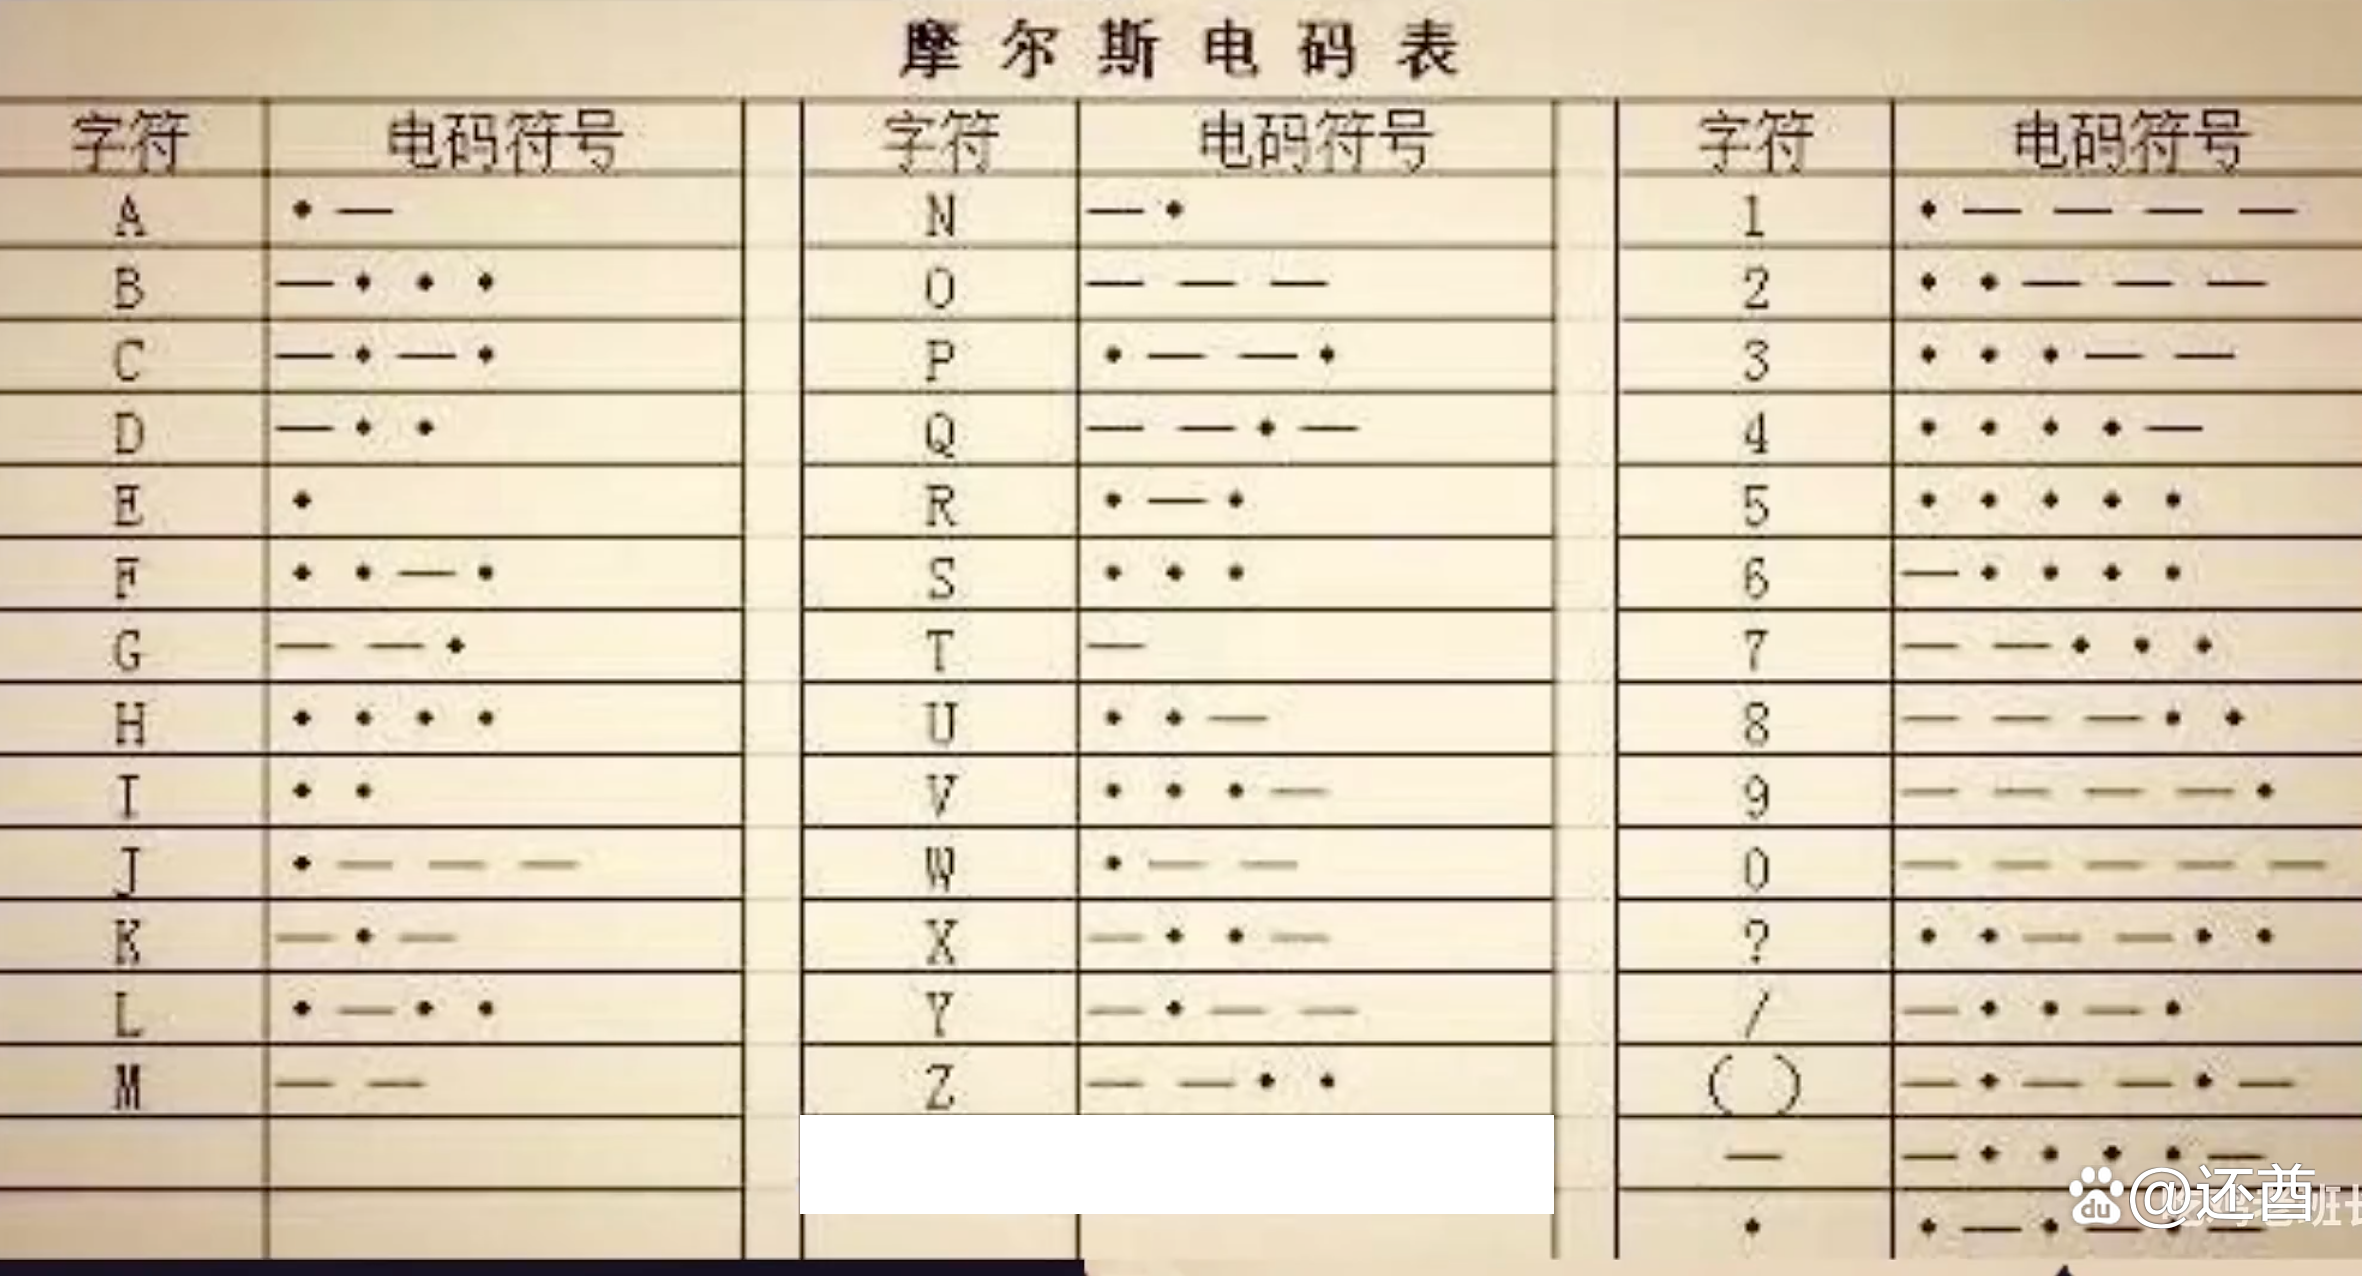 摩尔斯电码表
字符 电码符号 字符 电码符号 字符 电码符号
A •— N —• 1 •————
B —••• O ——— 2 ••———
C —•—• P •——• 3 •••——
D —•• Q ——•— 4 ••••—
E • R •—• 5 •••••
F ••—• S ••• 6 —••••
G ——• T — 7 ——•••
H •••• U ••— 8 ———••
I •• V •••— 9 ————•
J •——— W •—— 0 —————
K —•— X —••— ? ••——••
L •—•• Y —•—— / —••—•
M —— Z ——•• ( ) —•——•—
— —••••—
• •—•—•—
du @还酋
班长